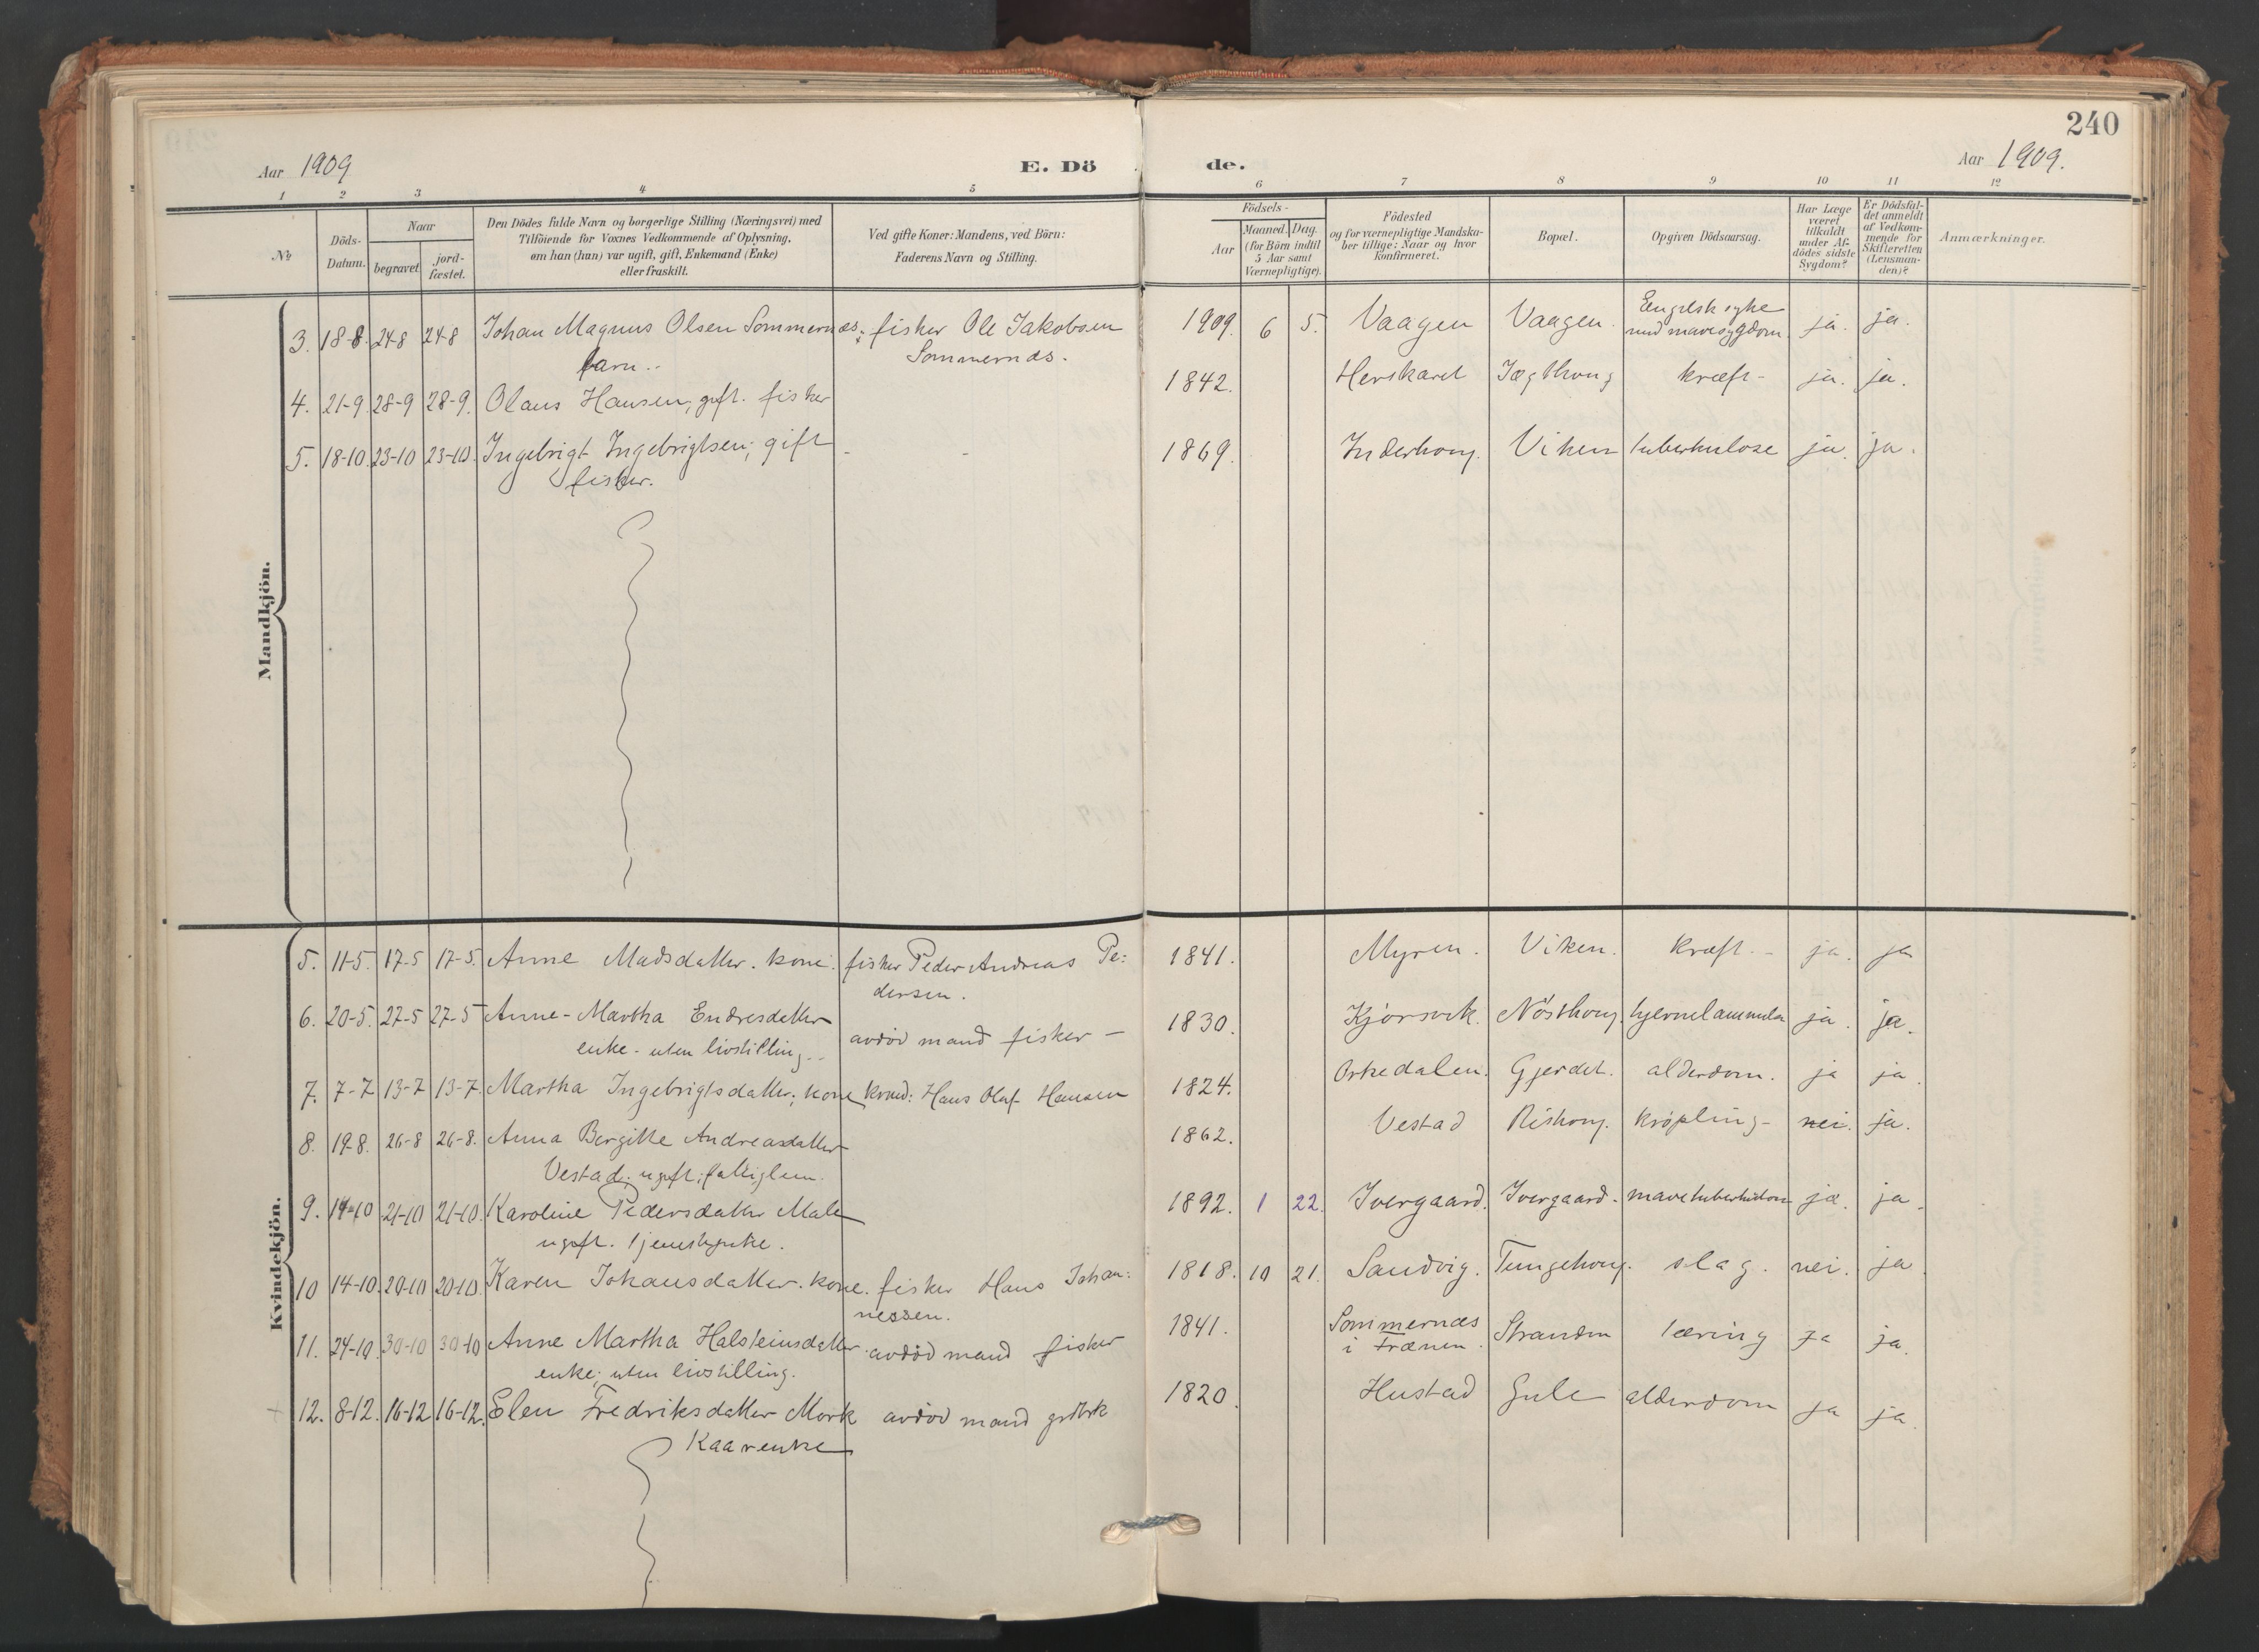 240
Aar 1909
E. Dö de.
Aar 1909.
1 2 3 4 5 6 7 8 9 10 11 12
No
Döds-Datum.
Naar
begravet
jord-fæstet.
Den Dödes fulde Navn og borgerlige Stilling (Næringsvei) med
Tilföiende for Voxnes Vedkommende af Oplysning,
om han (hun) var ugift, gift, Enkemand (Enke)
eller fraskilt.
Ved gifte Koner: Mandens, ved Börn:
Faderens Navn og Stilling.
Födsels-
Aar
Maaned. Dag.
(for Börn indtil
5 Aar samt
Værnepligtige).
Födested
og for værnepligtige Mandska-
ber tillige: Naar og hvor
konfirmeret.
Bopæl.
Opgiven Dödsaarsag.
Har Læge
været
tilkaldt
under Af-
dödes sidste
Sygdom?
Er Dödsfal-
det anmeldt
af Vedkom-
mende for
Skifteretten
(Lensman-
den)?
Anmærkninger.
Mandkjön.
3. 18-8 24-8 24-8 Johan Magnus Olsen Sommernæs; fisker Ole Jakobsen 1909. 6 5. Vaagen Vaagen. Engelsk syke ja. ja.
barn.. Sommernæs. med mavesygdom.
4. 21-9 28-9 28-9. Olaus Hansen, gift. fisker 1842. Herskaret Jægthaug kræft- ja. ja.
5. 18-10. 23-10 23-10. Ingebrigt Ingebrigtsen; gift - - 1869. Inderhaug. Viken tuberkulose ja. ja.
fisker.
Kvindekjön.
5. 11-5. 17-5 17-5. Anne Madsdatter. kone. fisker Peder Andreas Pe: 1841. Myren. Viken. kræft.- ja. ja
dersen.
6. 20-5. 27-5 27-5 Anne-Martha Endresdatter avdöd mand fisker - 1830. Kjørsvik. Nösthaug. ja. ja.
enke - uten livstilling..
7. 7-7 13-7 13-7. Martha Ingebrigtsdatter; kone Hans Olaf Hansen 1824. Orkedalen. Gjerdet. alderdom. ja ja.
8. 19-8. 26-8 26-8. Anna Bergitte Andreasdatter 1862. Vestad Rishaug. krøpling- nei. ja.
Vestad; ugift; fattiglem.
9. 14-10 21-10 21-10. Karoline Pedersdatter Male 1892. 1 22. Ivergaard. Ivergaard. ja. ja.
ugift. tjenestepike.
10 14-10. 20-10 20-10. Karen Johansdatter. kone. fisker Hans Johan: 1818. 10 21. Sandvig. Tungehaug. slag. nei. ja.
nessen.
11. 24-10. 30-10 30-10 Anne Martha Halsteinsdatter. avdöd mand fisker 1841. Sommernæs Stranden tæring ja ja.
enke; uten livstilling. i Frænen.
12. 8-12. 16-12 16-12. Elen Fredriksdatter Mork avdöd mand grdbrk 1820. Hustad Gule alderdom ja ja.
Kaarenke